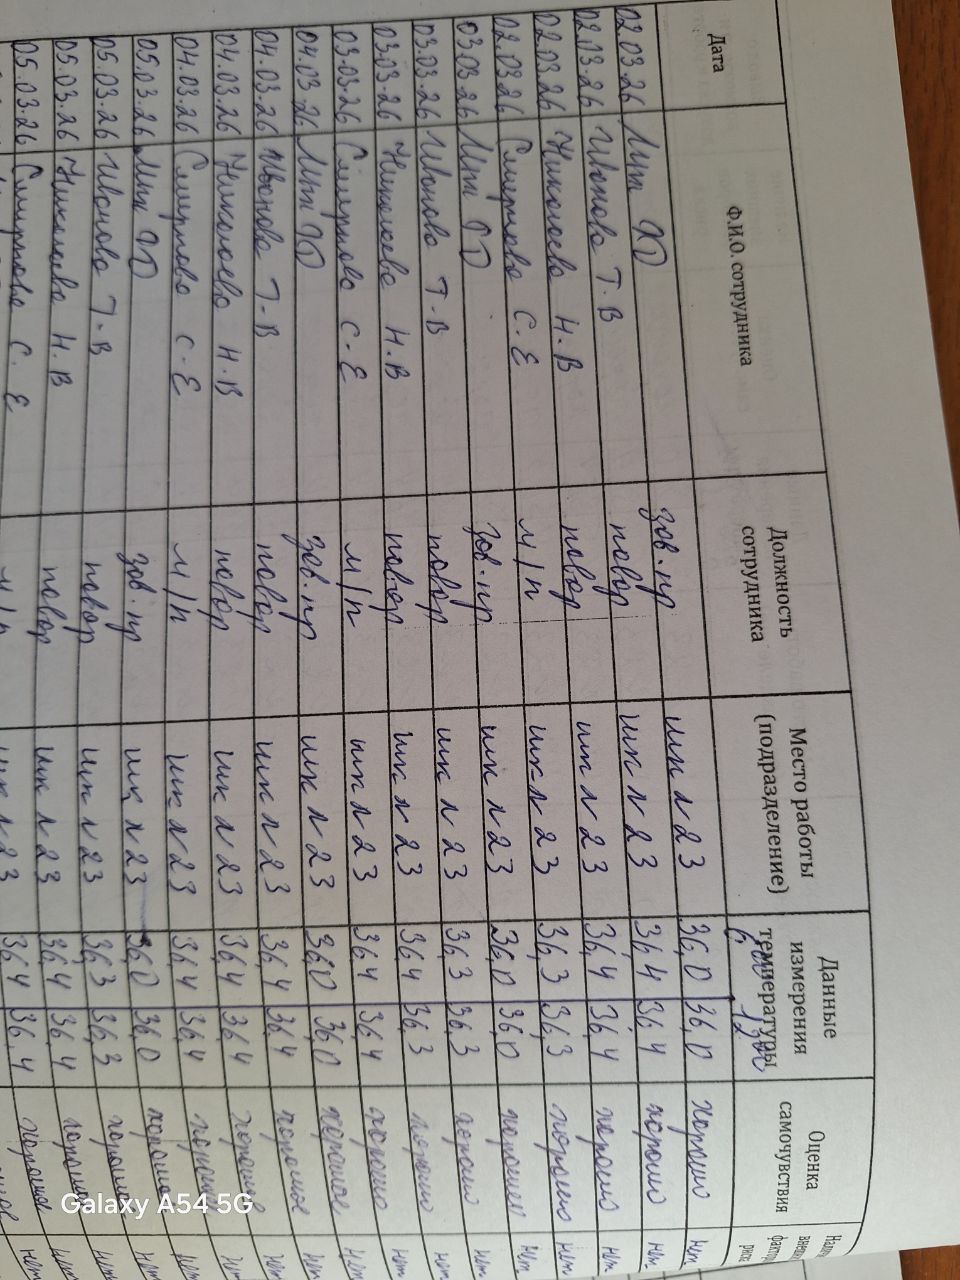 Дата Ф.И.О. сотрудника Должность сотрудника Место работы (подразделение) Данные измерения температуры Оценка самочувствия
02.03.26 зав.пр шк л 23 36,0 36,0 хорошо нет
02.03.26 Иванова Т.В повар шк л 23 36,4 36,4 хорошо нет
02.03.26 Николаева Н.В повар шк л 23 36,4 36,4 хорошо нет
02.03.26 Смирнова С.Е м/п шк л 23 36,3 36,3 хорошо нет
03.03.26 зав.пр шк л 23 36,0 36,0 хорошо нет
03.03.26 Иванова Т-В повар шк л 23 36,3 36,3 хорошо нет
03.03.26 Николаева Н.В повар шк л 23 36,4 36,3 хорошо нет
03.03.26 Смирнова С-Е м/п шк л 23 36,4 36,4 хорошо нет
04.03.26 зав.пр шк л 23 36,0 36,0 хорошее нет
04.03.26 Иванова Т-В повар шк л 23 36,4 36,4 хорошее нет
04.03.26 Николаева Н.В повар шк л 23 36,4 36,4 хорошее нет
04.03.26 Смирнова С-Е м/п шк л 23 36,4 36,4 хорошее нет
05.03.26 зав.пр шк л 23 36,0 36,0 хорошее нет
05.03.26 Иванова Т-В повар шк л 23 36,3 36,3 хорошее нет
05.03.26 Николаева Н.В повар шк л 23 36,4 36,4 хорошее нет
05.03.26 Смирнова С.Е м/п шк л 23 36,4 36,4 хорошее нет
Galaxy A54 5G